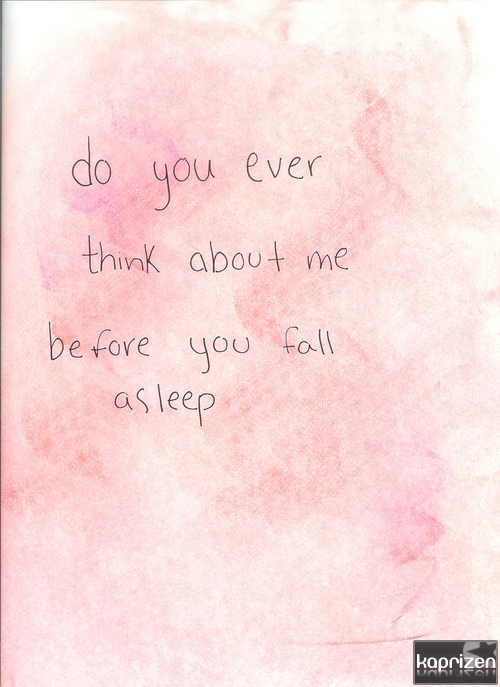 do you ever
think about me
before you fall
asleep
kaprizen